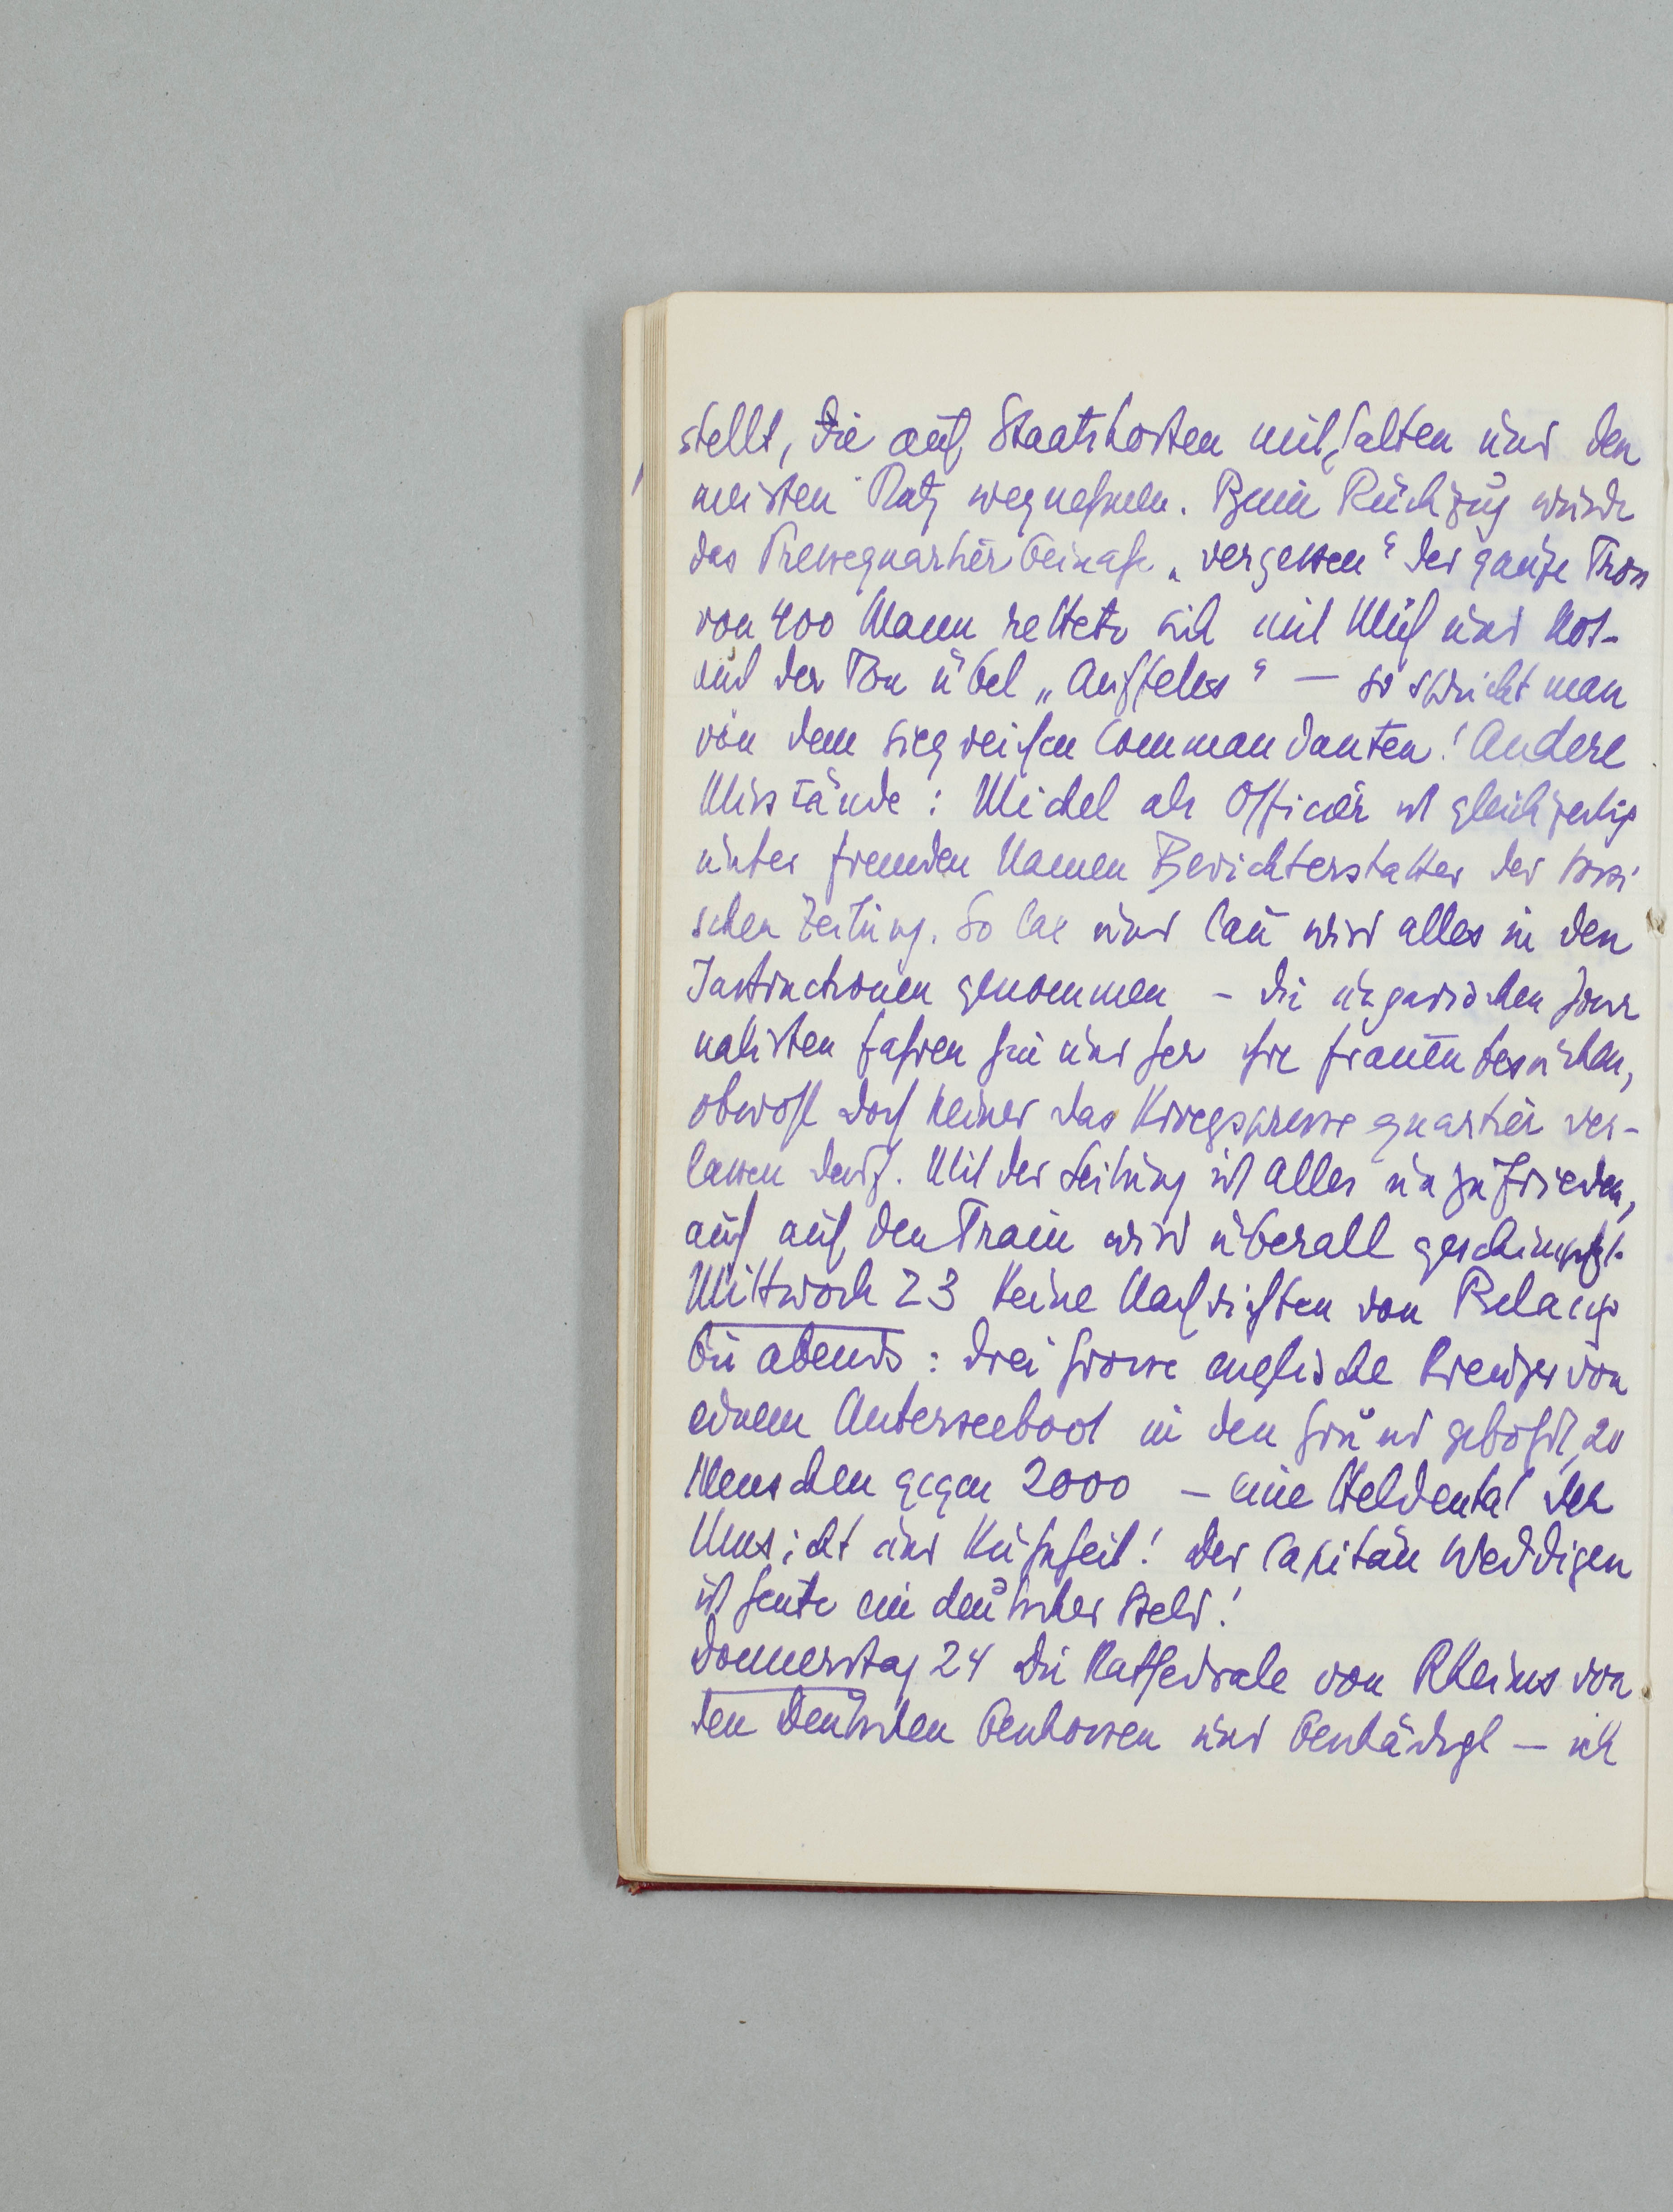 stellt, die auf Staatskosten mithalten und den
meisten Platz wegnehmen. Beim Rückzug wurde
das Pressequartier beinahe „vergessen“ der ganze Tross
von 400 Mann rettete sich mit Müh und Not –
und der Ton übel „Auffeles“ – so spricht man
von dem siegreichen Commandanten! Andere
Misstände: Michel als Officier ist gleichzeitig
unter fremden Namen Berichterstatter der Vossi
schen Zeitung. So lax und lau wird alles in den
Instructionen genommen – die ungarischen Jour
nalisten fahren hin und her ihre Frauen besuchen,
obwohl doch keiner das Kriegspressequartier ver-
lassen darf. Mit der Leitung ist alles unzufrieden,
auch auf den Train wird überall geschimpft.
Mittwoch 23 Keine Nachrichten von Belang
bis abends: drei grosse englische Kreuzer von
einem Unterseeboot in den Grund gebohrt, 20
Menschen gegen 2000 – eine Heldentat der
Umsicht und Kühnheit! Der Capitän Weddigen
ist heute ein deutscher Held!
Donnerstag 24 Die Kathedrale von Rheims von
den Deutschen beschossen und beschädigt – ich